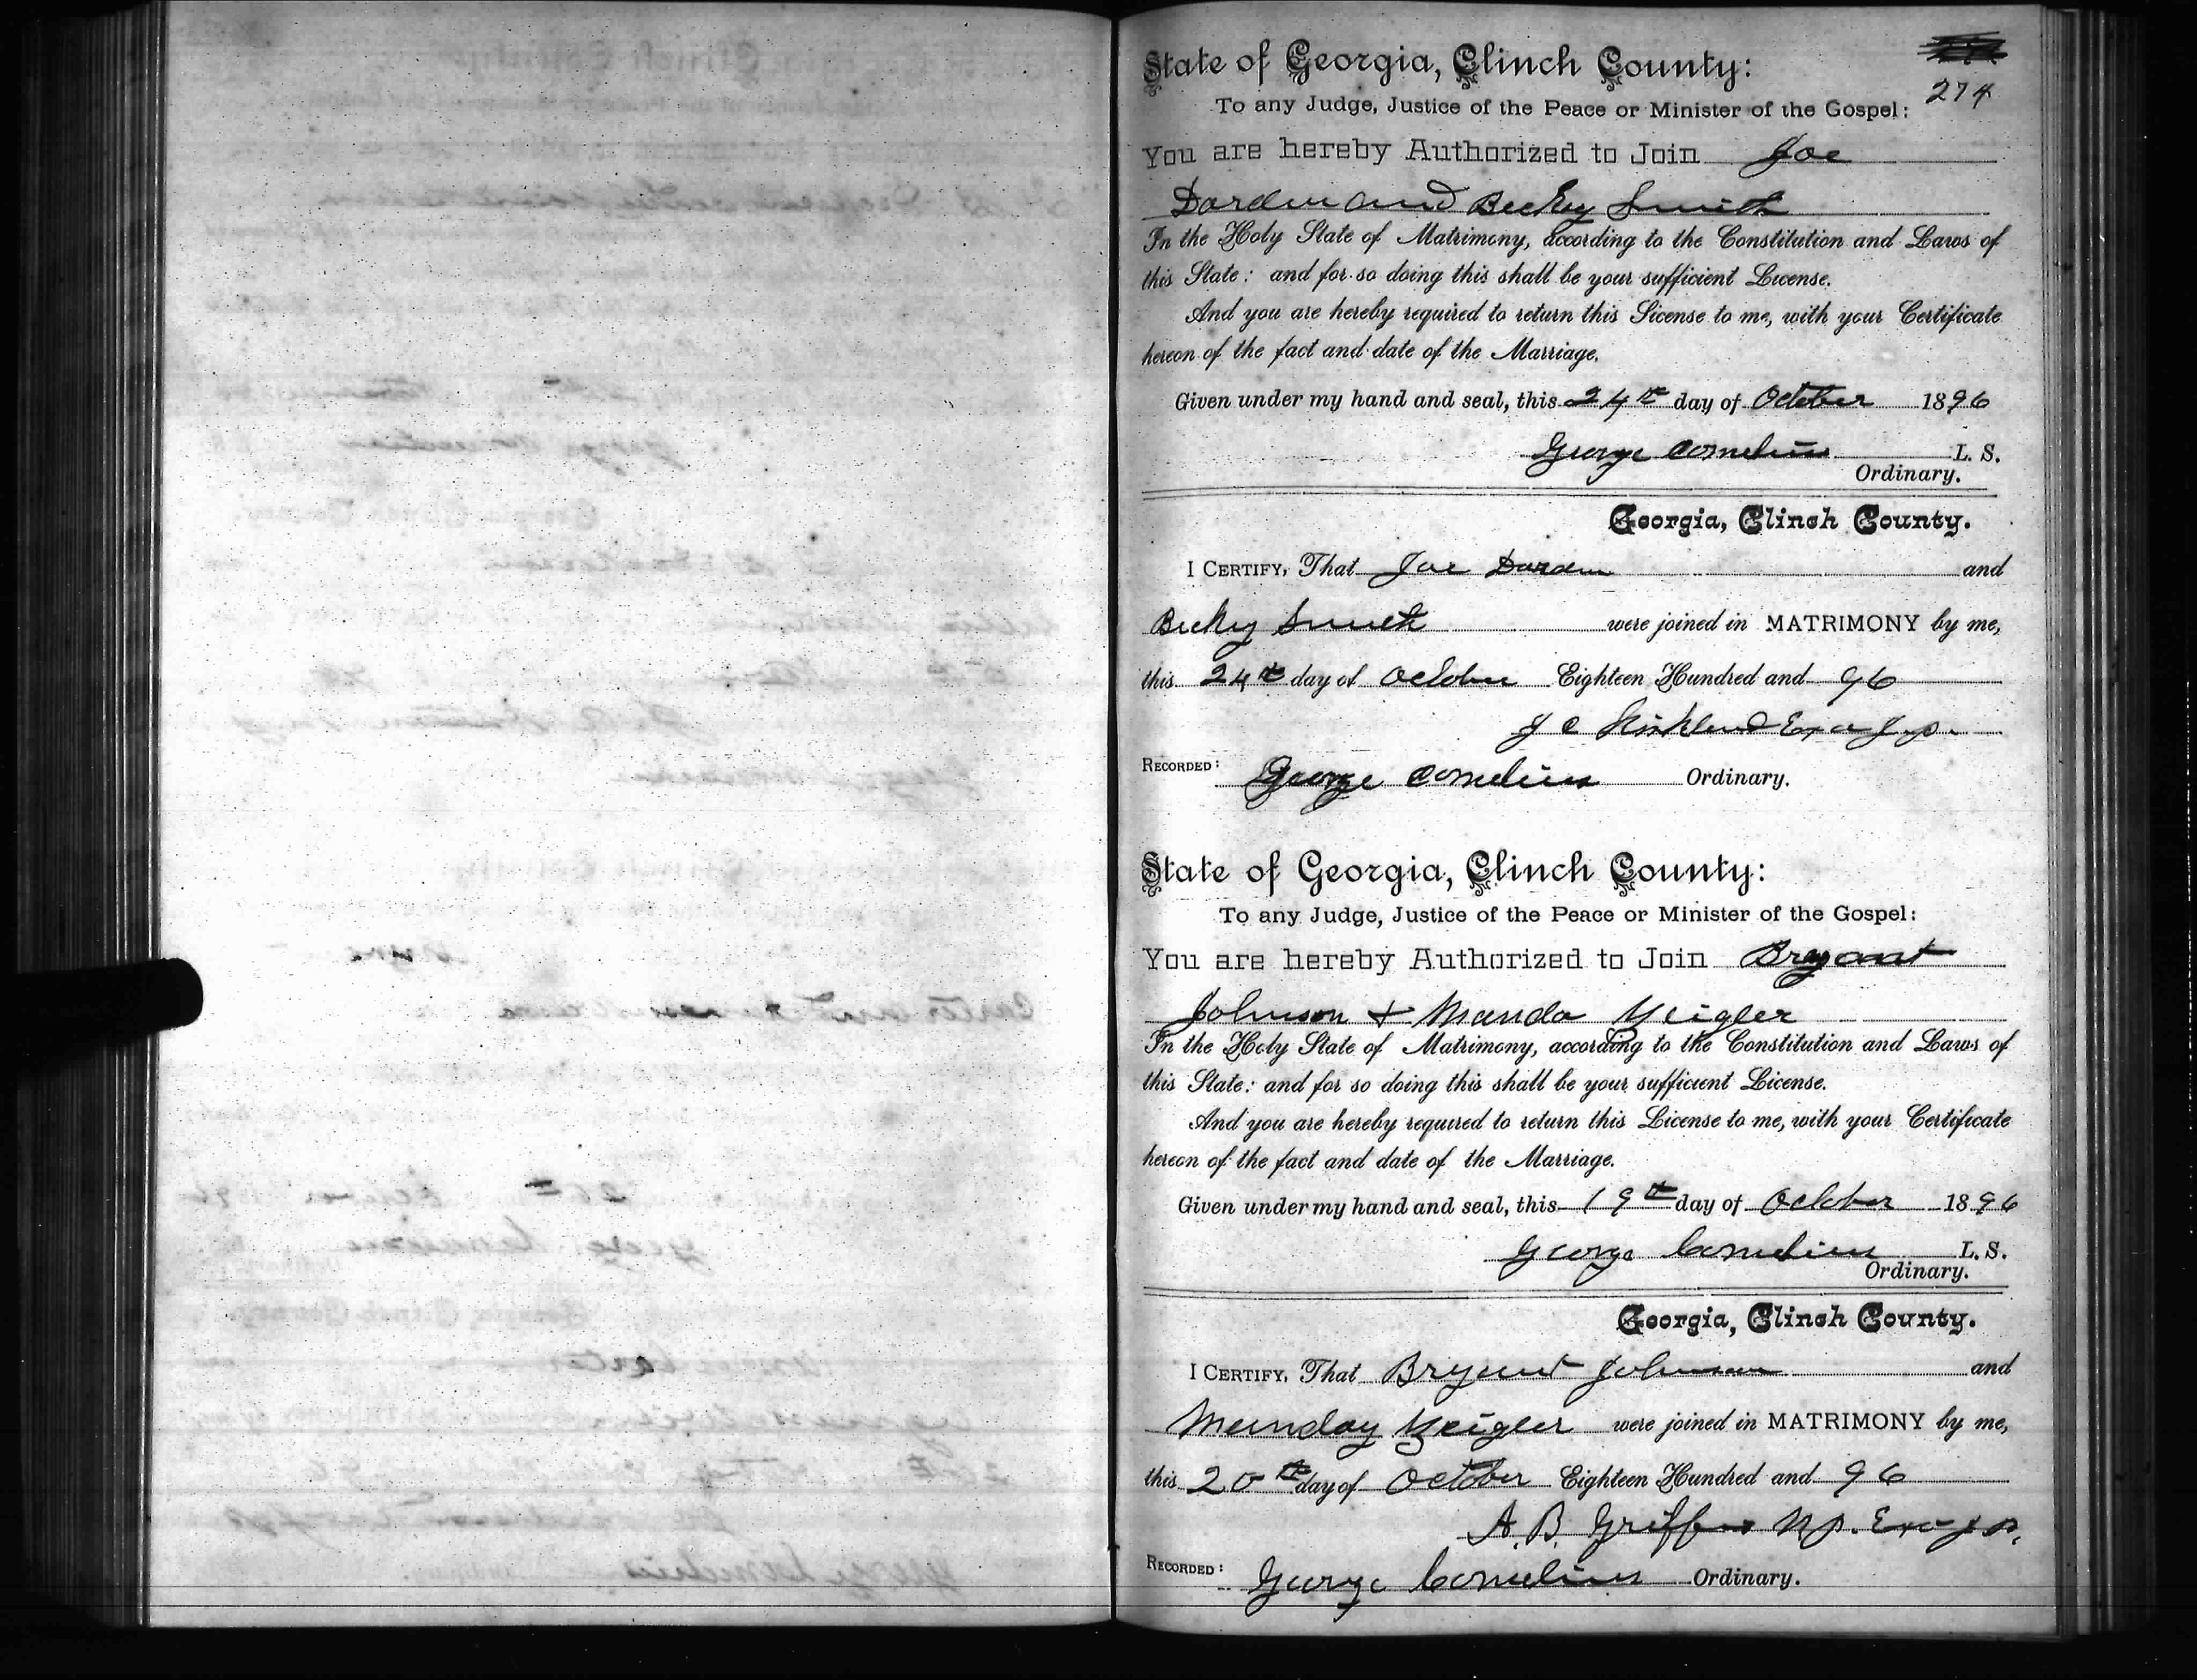 274
State of Georgia, Clinch County:
To any Judge, Justice of the Peace or Minister of the Gospel:
You are hereby Authorized to Join Joe
Darden and Becky Smith
In the Holy State of Matrimony, according to the Constitution and Laws of
this State: and for so doing this shall be your sufficient License.
And you are hereby required to return this License to me, with your Certificate
hereon of the fact and date of the Marriage.
Given under my hand and seal, this 24th day of October 1896
George Cornelius L. S.
Ordinary.
Georgia, Clinch County.
I CERTIFY, That Joe Darden and
Becky Smith were joined in MATRIMONY by me,
this 24th day of October Eighteen Hundred and 96
J C Kirkland Exo J.P.
RECORDED: George Cornelius Ordinary.
State of Georgia, Clinch County:
To any Judge, Justice of the Peace or Minister of the Gospel:
You are hereby Authorized to Join Bryant
Johnson + Manda Yeigler
In the Holy State of Matrimony, according to the Constitution and Laws of
this State: and for so doing this shall be your sufficient License.
And you are hereby required to return this License to me, with your Certificate
hereon of the fact and date of the Marriage.
Given under my hand and seal, this 19th day of October 1896
George Cornelius L. S.
Ordinary.
Georgia, Clinch County.
I CERTIFY, That Bryant Johnson and
Manday Zeigler were joined in MATRIMONY by me,
this 20th day of October Eighteen Hundred and 96
A. B. Griffin N.P. Exo J.P.
RECORDED: George Cornelius Ordinary.